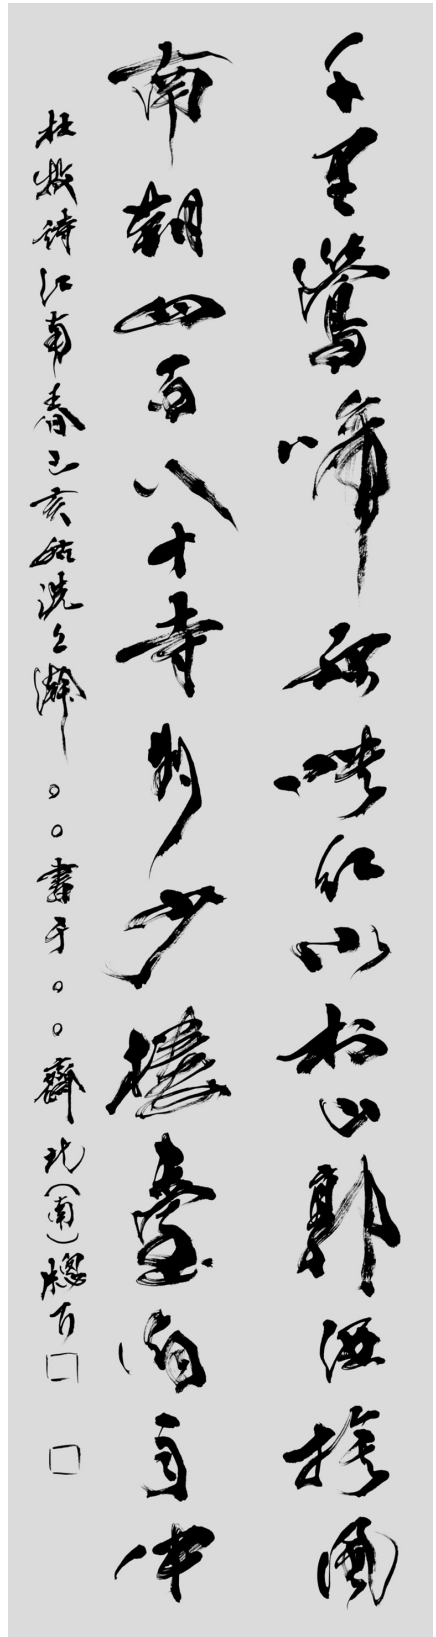 千里鶯啼綠映紅水村山郭酒旗風
南朝四百八十寺多少樓臺煙雨中
杜牧詩江南春己亥姑洗之澣○○書于○○齋北(南)牕下□ □